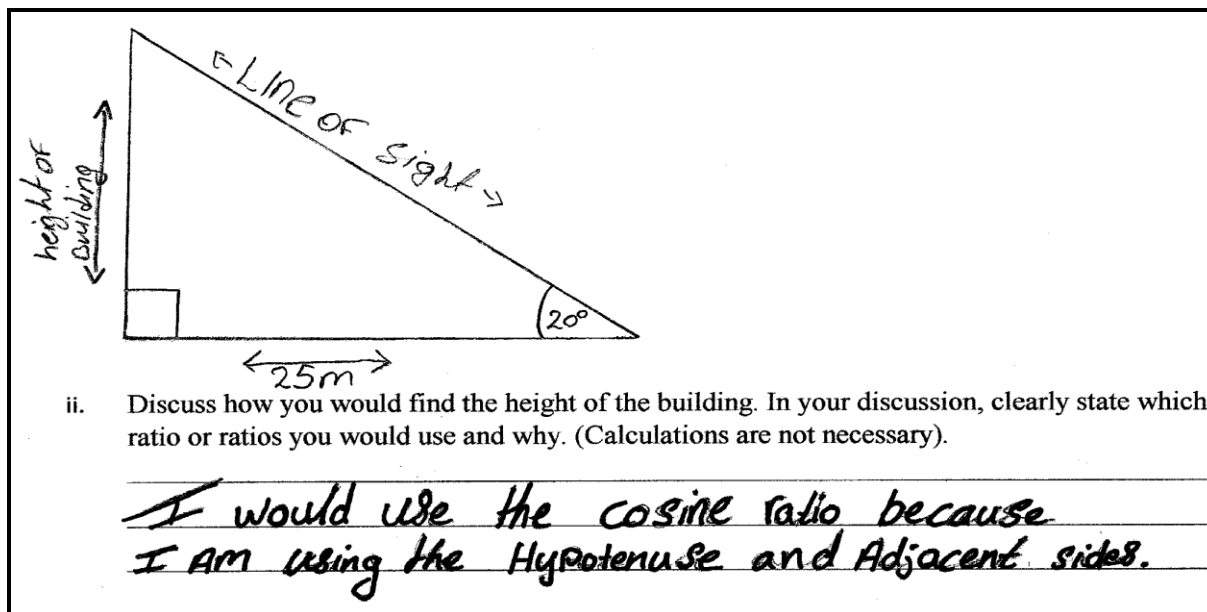 ← Line of sight →
height of
Building
20°
25m
ii. Discuss how you would find the height of the building. In your discussion, clearly state which
ratio or ratios you would use and why. (Calculations are not necessary).
I would use the cosine ratio because
I Am using the Hypotenuse and Adjacent sides.